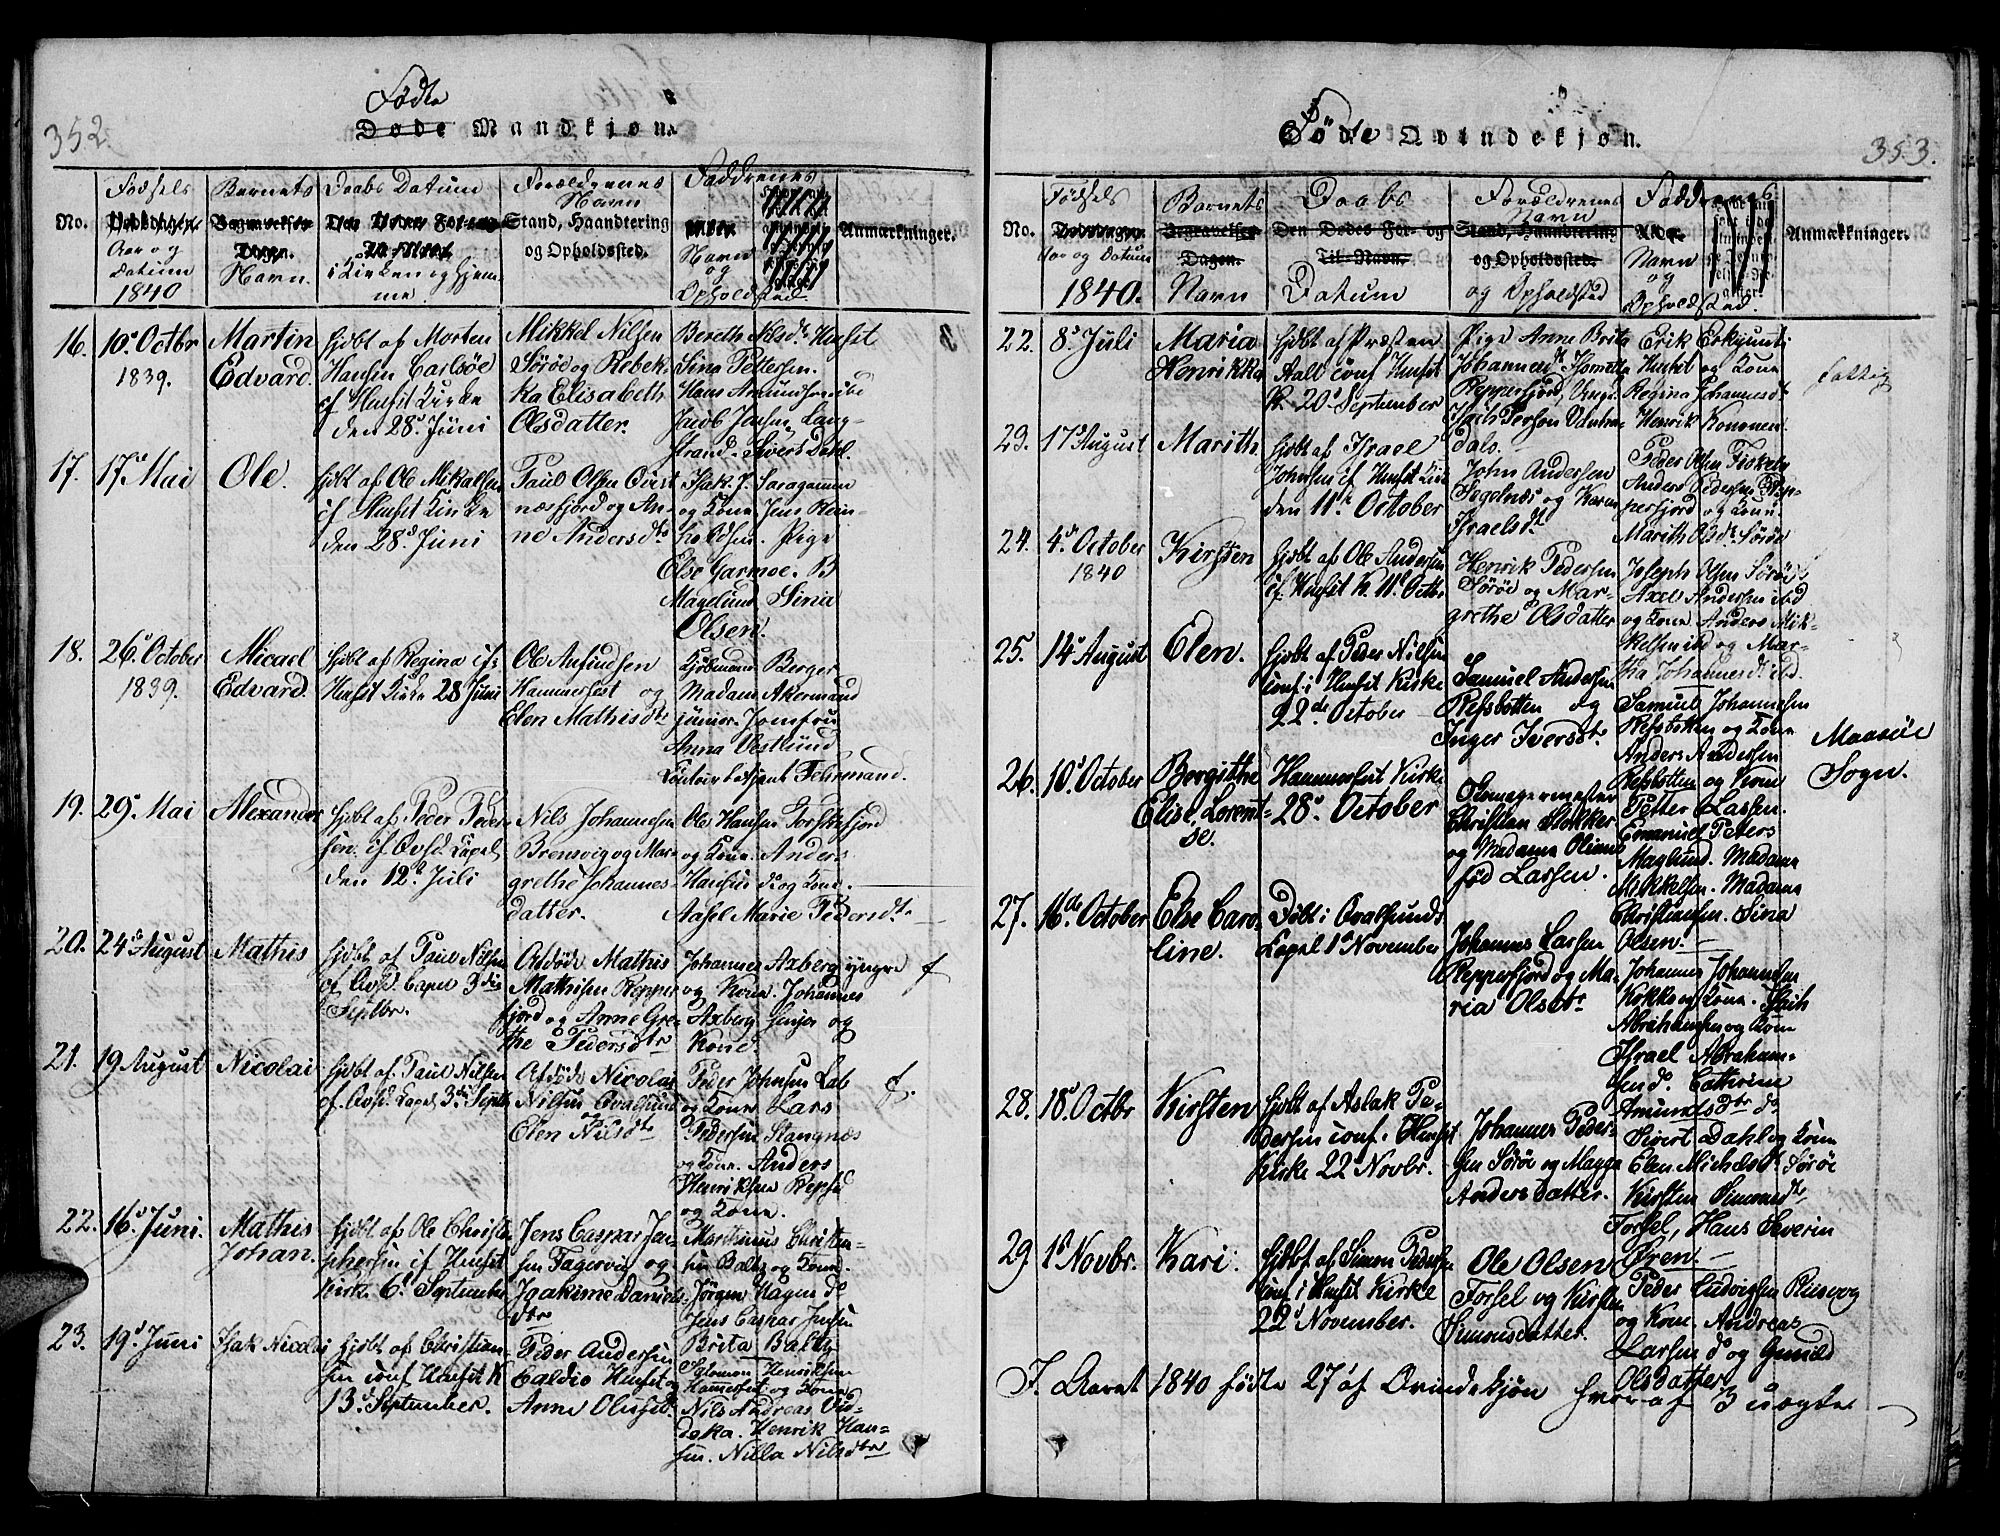 352.
Fødte
Døde Mandkjøn.
No.
Fødsels
Aar og
Datum
1840
Barnets
Begravelses
Dagen.
Navn.
Daabs Datum
i Kirken og Hjem-
me.
Forældrenes
Navn
Stand, Haandtering
og Opholdssted.
Faddrenes
Navn
og
Opholdsted
Anmærkninger.
16.
10. Octbr
1839.
Martin
Edvard.
hjdbt af Morten
Hansen Carlsöe
cf Hmfst Kirke
den 28. Juni
Mikkel Nilsen
Sörøe og Rebek-
ka Elisabeth
Olsdatter.
Bereth Nilsdr Hmfst
Sina Pettersen.
Jacob Jansen, Lang-
strand. Sivert Dahl.
17.
17. Mai
Ole.
hjdbt af Ole Mikalsen
cf Hmfst Kirke
den 28. Juni
Paul Olsen Qvist
næsfjord og An-
ne Andersdtr
Isak P. Saragammen
og Kone. Jens Rein-
holdsen. Pige
Else Garmoe. B
Magelund Sina
Olsen.
18.
26. October
1839.
Micael
Edvard.
hjdbt af Regina
Hmfst Kirke 28 Juni
Ole Amundsen
Hammerfest og
Elen Mathisdtr
Kjöbmann Berger
Madam Akermand
junior. Jomfru
Anna Vestlund
Contoirbetjent Fehrmand.
19.
29. Mai
Alexander
hjdbt af Peder Peder
sen. cf Qvsd. Capel
den 12. Juli
Nils Johannesen
Brensvig og Mar-
grethe Johannes
datter.
Ole Hansen Torskefjord
og Kone. Anders
Hansen do og Kone.
Aasel Marie Pedersdtr
20.
24 August
Mathis
hjdbt af Paul Nilsen
cf Qvsd. Capel 3die
Septbr.
Afdøde Mathis
Mathisen Repper
fjord og Anne Gre-
the Pedersdtr
Johannes Axberg yngre
og Kone. Johannes
Axberg Senior og
Kone.
f
21.
19 August
Nicolai
hjdbt af Paul Nilsen
cf Qvsd. Capel 3die Septbr
Afdøde Nicolai
Nilsen Qvalsund
og
Elen Nilsdtr
Peder Johnsen
og Kone Lars
Pedersen Stangnæs
og Kone. Anders
Henriksen
og Kone.
f.
22.
16. Juni.
Mathis
Johan.
hjdbt af Ole Christo
phersen cf Hmfst
Kirke 6. September
Jens Caspar Jen-
sen Fagervig og
Joakime Daniels-
dtr
Marthinus Christen-
sen Baltz og Kone.
Jørgen Hagen do
Jens Caspar Jensen
Brita Baltz
23.
19. Juni
Isak Nicolai
hjdbt af Christian
sen conf. Hmfst K
13. September.
Peder Andersen
Caldis Hmfst og
Anne Olsdtr.
Salomon Henriksen
Hammerfest og Kone
Nils Andreas
Henrik Han-
sen. Nilla Nilsdtr
353.
Føde Qvindekjøn.
No.
Fødsels
Aar og Datum
1840.
Barnets
Begravelses
Dagen.
Navn
Daabs
Den Dødes For- og
Til-Navn.
Datum
Forældrenes
Navn
Stand, Haandtering
og Opholdssted.
og Opholdsted
Faddrenes
Navn
og
Opholdsted.
Anmærkninger.
22.
8. Juli
Maria
Henrikka
hjdbt af Præsten
Aall conf. Hmfst
K. 20. September
Pige Anne Brita
Johannesdr
Repperfjord, Ungk.
Isach Persen
dals.
Erik Erkgumti
Hmfst og Kone
Regina Johannesdr
Henrik Kononen
fattig
23.
17. August
Marith.
hjdbt af Israel
Johnsen cf Hmfst Kirke
den 11. October
John Andersen
Segelnæs og Karen
Israelsdr
Peder Olsen Fiskeby
Anders Pedersen Rep-
perfjord og Kone.
Marith Olsdr Sørøe
24.
4. October
1840
Kirsten
hjdbt af Ole Andersen
cf. Hmfst K. 11. Octbr.
Henrik Pedersen
Sørøe og Mar-
grethe Olsdatter
Joseph Olsen Sørøe
Axel Andersen ibd
og Kone Anders Mik-
kelsen ibd og Mar-
Johannesdr ibd.
25.
14. August
Elen.
hjdbt af Peder Nilsen
conf. i Hmfst Kirke
22de October
Samuel Andersen
Refsbotten og
Inger Iversdtr.
Samuel Johannesen
Refsbotten og Kone
Anders Andersen
Refsbotten og Kone
Petter Lassen.
Maasöe
Sogn.
26.
10. October
Bergithe
Elise Lorent-
se.
Hammerfest Kirke
28. October
Skomagermester
Christian Stokker
og Madame Oliane
fød Larsen.
Emanuel Peters
Maglund. Madame
Mikkelsen. Madame
Christiansen. Sina
Olsen.
27.
16de October
Else Caro-
line.
Döbt i Qvalsunds
Capel 1. November
Johannes Larsen
Repperfjord og Ma-
ria Olsdtr
Johannes Johannesen
Kokko og Kone.
Abrahamsen og Kone
Israel Abraham-
sen do. Cathrine
Amundsdtr do
28.
18. Octbr
Kirsten
hjdbt af Aslak Pe-
dersen conf. i Hmfst
Kirke 22 Novbr.
Johannes Peder-
sen Sørøe og Magga
Andersdatter.
Sivert Dahl og Kone
Elen Michelsdtr Sørøe
Kirsten Simonsdtr
Forsel, Hans Severin
Øren.
29.
1. Novbr.
Kari.
hjdbt af Simon Pedersen
conf. i Hmfst Kirke
22 November.
Ole Olsen
Forsel og Kirsten
Simonsdatter.
Peder Ludvigsen
og Kone Andreas
Larsen do og Gunild
Olsdatter
I Aaret 1840 födte 27 af Qvindekjön hvoraf 3 uægte